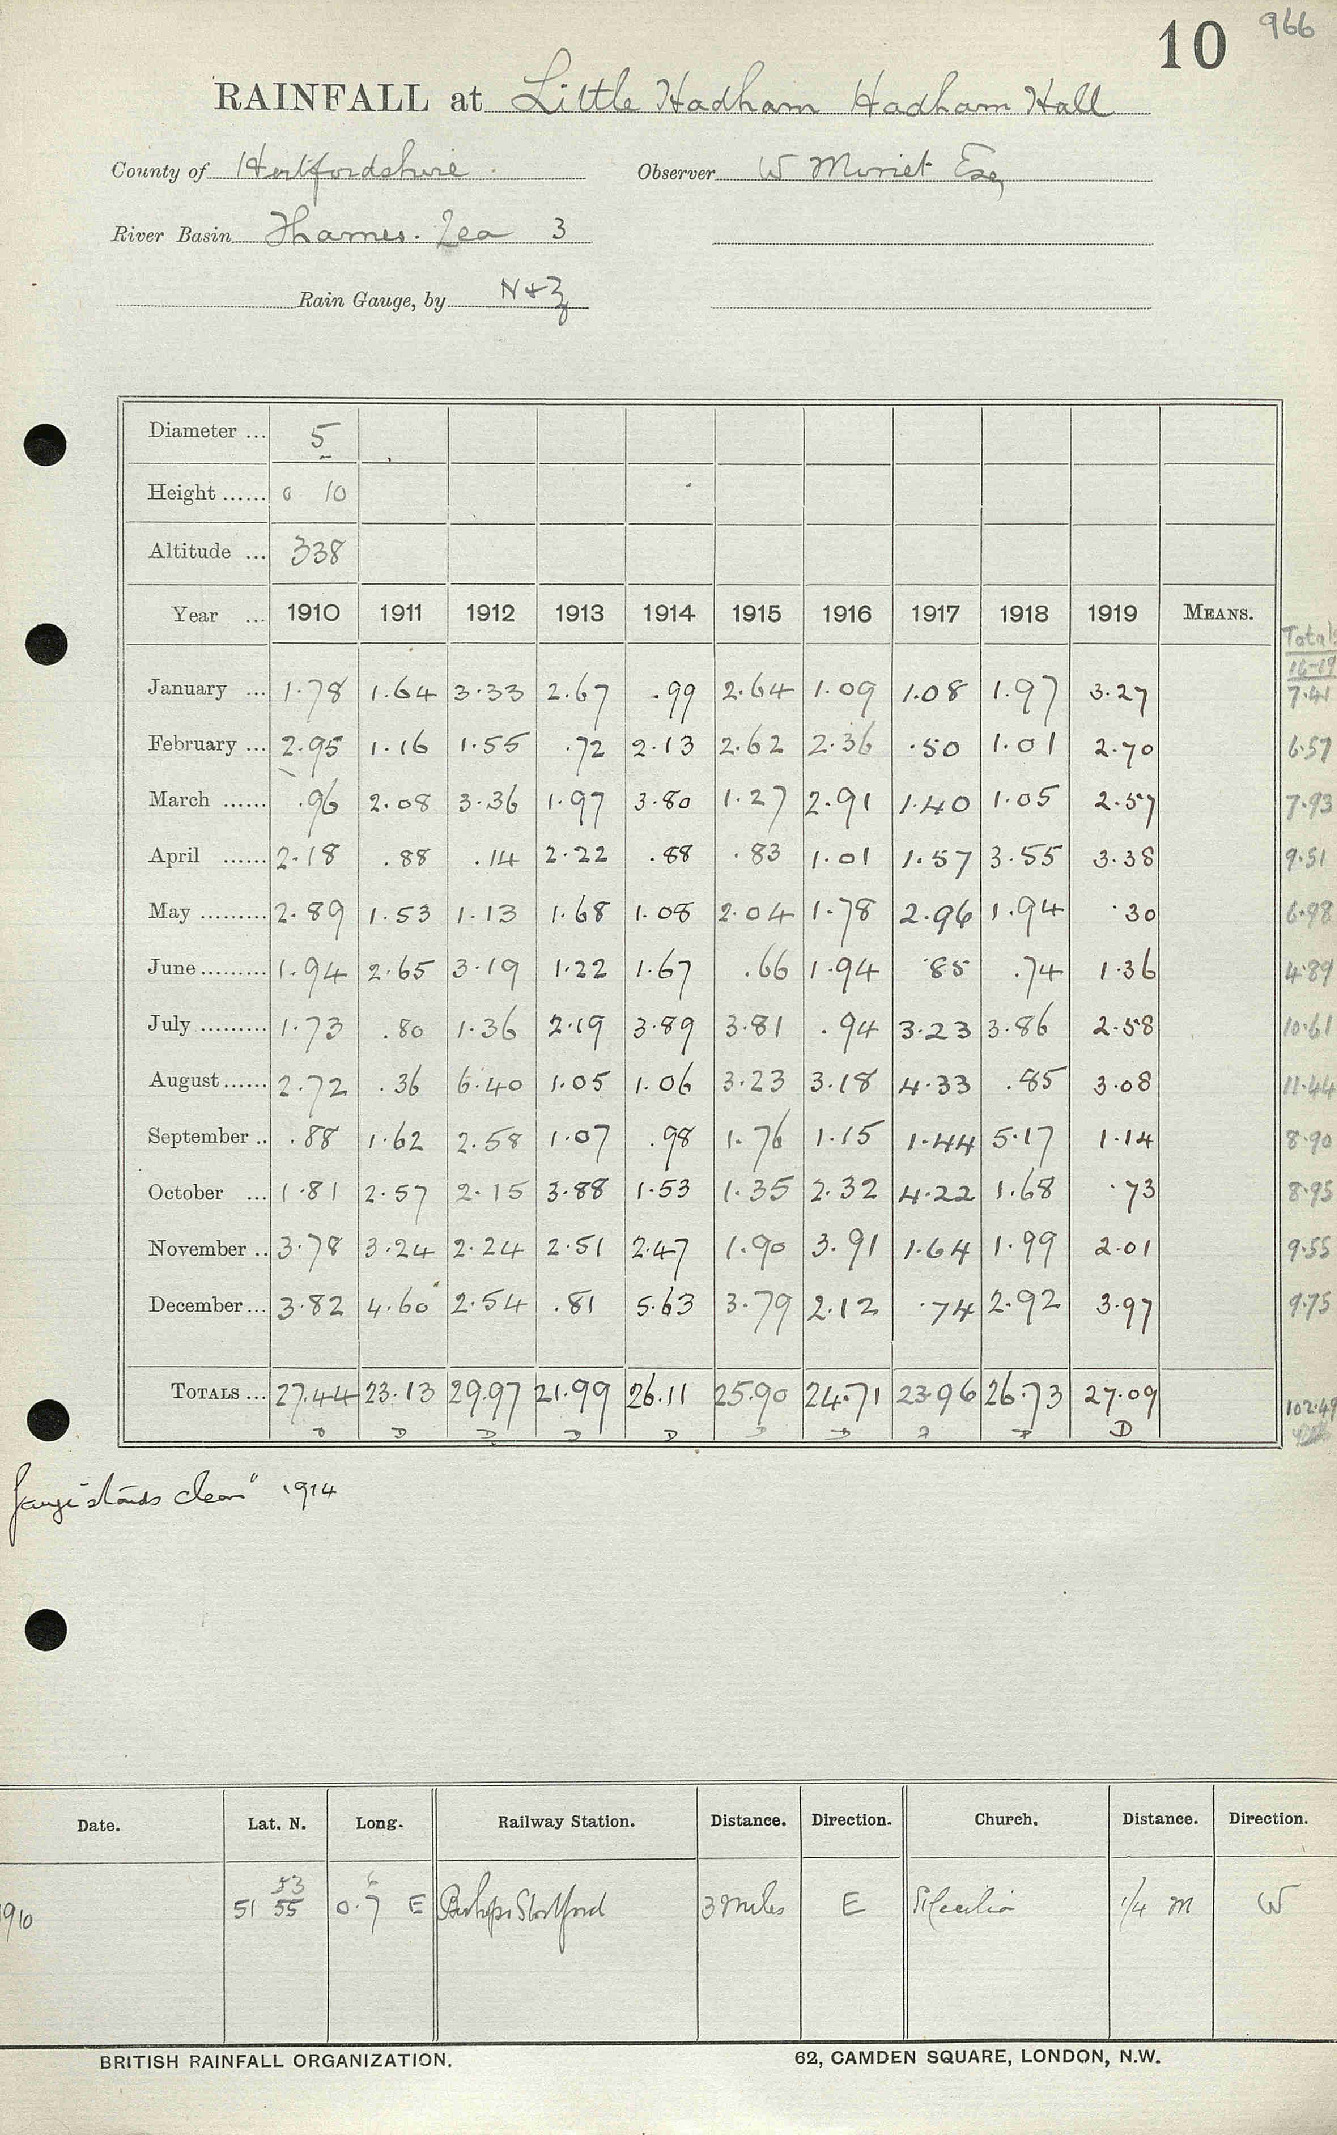 10 966
RAINFALL at Little Hadham Hadham Hall
County of Hertfordshire. Observer W Minet Esq
River Basin Thames. Lea 3
Rain Gauge, by N & Z
Diameter ... 5
Height ...... 0 10
Altitude ... 338
Year ... 1910 1911 1912 1913 1914 1915 1916 1917 1918 1919 MEANS. Totals 16-19
January ... 1.78 1.64 3.33 2.67 .99 2.64 1.09 1.08 1.97 3.27 7.41
February ... 2.95 1.16 1.55 .72 2.13 2.62 2.36 .50 1.01 2.70 6.57
March ...... .96 2.08 3.36 1.97 3.80 1.27 2.91 1.40 1.05 2.57 7.93
April ...... 2.18 .88 .14 2.22 .88 .83 1.01 1.57 3.55 3.38 9.51
May ......... 2.89 1.53 1.13 1.68 1.08 2.04 1.78 2.96 1.94 .30 6.98
June ......... 1.94 2.65 3.19 1.22 1.67 .66 1.94 .85 .74 1.36 4.89
July ......... 1.73 .80 1.36 2.19 3.89 3.81 .94 3.23 3.86 2.58 10.61
August ...... 2.72 .36 6.40 1.05 1.06 3.23 3.18 4.33 .85 3.08 11.44
September .. .88 1.62 2.58 1.07 .98 1.76 1.15 1.44 5.17 1.14 8.90
October ... 1.81 2.57 2.15 3.88 1.53 1.35 2.32 4.22 1.68 .73 8.95
November .. 3.78 3.24 2.24 2.51 2.47 1.90 3.91 1.64 1.99 2.01 9.55
December ... 3.82 4.60 2.54 .81 5.63 3.79 2.12 .74 2.92 3.97 9.75
TOTALS ... 27.44 23.13 29.97 21.99 26.11 25.90 24.71 23.96 26.73 27.09 102.49
D D D D D D D D D D
gauge "stands clear" 1914
Date. Lat. N. Long. Railway Station. Distance. Direction. Church. Distance. Direction.
53 6
1910 51 55 0.7 E Bishops Stortford 3 miles E St Cecilia 1/4 m W
BRITISH RAINFALL ORGANIZATION. 62, CAMDEN SQUARE, LONDON, N.W.